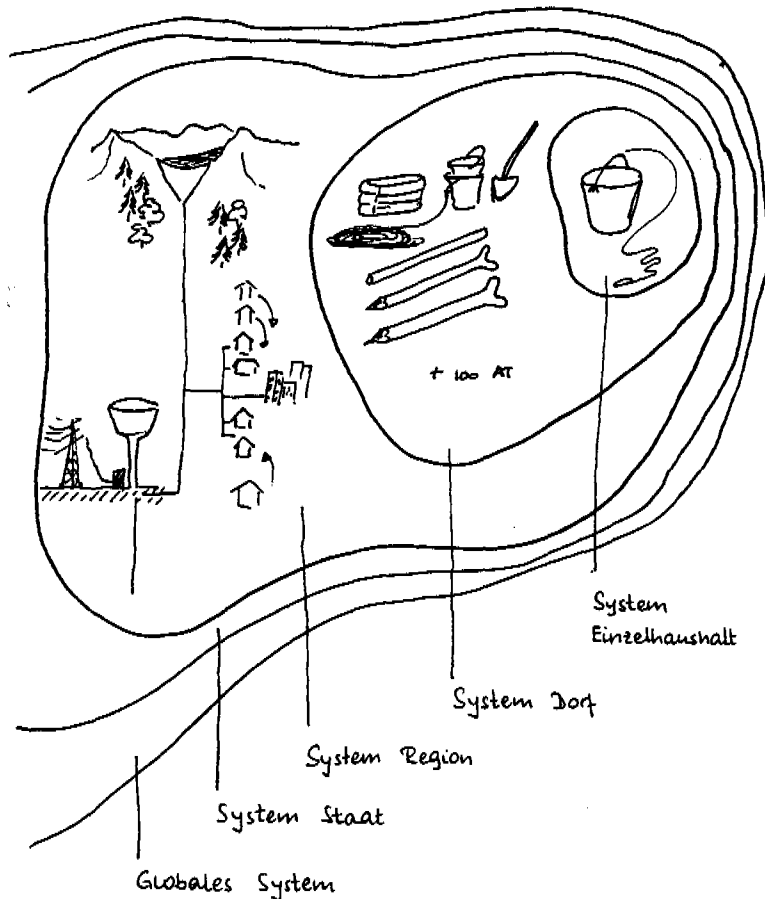 + 100 AT
System
Einzelhaushalt
System Dorf
System Region
System Staat
Globales System